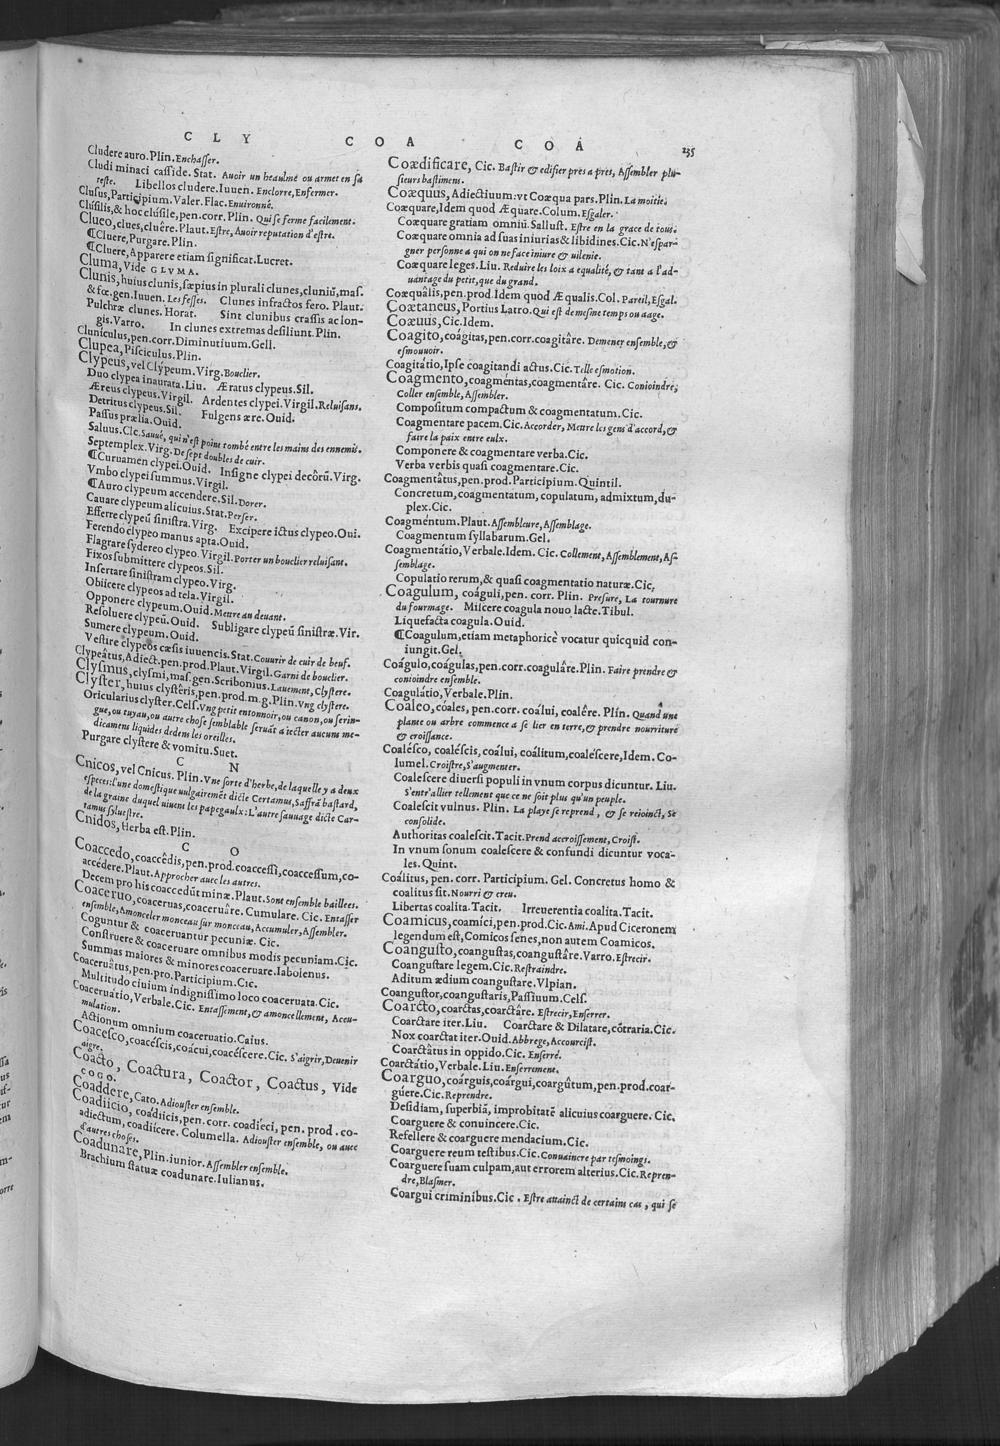 C L Y C O A C O A 235
Cludere auro. Plin. Enchasser.
Cludi minaci casside. Stat. Avoir un heaulme ou armet en sa
teste. Libellos cludere. Iuuen. Enclorre, Enfermer.
Clusus, Participium. Valer. Flac. Enuironné.
Clusilis, & hoc clusile, pen. corr. Plin. Qui se ferme facilement.
Clueo, clues, cluêre. Plaut. Estre, Auoir reputation d'estre.
¶Cluere, Purgare. Plin.
¶Cluere, Apparere etiam significat. Lucret.
Cluma, Vide GLVMA.
Clunis, huius clunis, sæpius in plurali clunes, cluniũ, mas.
& fœ. gen. Iuuen. Les fesses. Clunes infractos fero. Plaut.
Pulchræ clunes. Horat. Sint clunibus crassis ac lon-
gis. Varro. In clunes extremas desiliunt. Plin.
Cluniculus, pen. corr. Diminutiuum. Gell.
Clupea, Pisciculus. Plin.
Clypeus, vel Clypeum. Virg. Bouclier.
Duo clypea inaurata. Liu. Æratus clypeus. Sil.
Æreus clypeus. Virgil. Ardentes clypei. Virgil. Reluisans.
Detritus clypeus. Sil. Fulgens ære. Ouid.
Passus prælia. Ouid.
Saluus. Cic. Sauué, qui n'est point tombé entre les mains des ennemis.
Septemplex. Virg. De sept doubles de cuir.
¶Curuamen clypei. Ouid. Insigne clypei decôrũ. Virg.
Vmbo clypei summus. Virgil.
¶Auro clypeum accendere. Sil. Dorer.
Cauare clypeum alicuius. Stat. Perser.
Efferre clypeũ sinistra. Virg. Excipere ictus clypeo. Oui.
Ferendo clypeo manus apta. Ouid.
Flagrare sydereo clypeo. Virgil. Porter un bouclier reluisant.
Fixos submittere clypeos. Sil.
Insertare sinistram clypeo. Virg.
Obiicere clypeos ad tela. Virgil.
Opponere clypeum. Ouid. Mettre au deuant.
Resoluere clypeũ. Ouid. Subligare clypeũ sinistræ. Vir.
Sumere clypeum. Ouid.
Vestire clypeos cæsis iuuencis. Stat. Couurir de cuir de beuf.
Clypeâtus, Adiect. pen. prod. Plaut. Virgil. Garni de bouclier.
Clysmus, clysmi, mas. gen. Scribonius. Lauement, Clystere.
Clyster, huius clystêris, pen. prod. m. g. Plin. Vng clystere.
Oricularius clyster. Cels. Vng petit entonnoir, ou canon, ou serin-
gue, ou tuyau, ou autre chose semblable seruãt a iecter aucuns me-
dicamens liquides dedens les oreilles.
Purgare clystere & vomitu. Suet.
C N
Cnicos, vel Cnicus. Plin. Vne sorte d'herbe, de laquelle y a deux
especes: l'une domestique uulgairemẽt dicte Certamus, Saffrã bastard,
de la graine duquel uiuent les papegaulx: L'autre sauuage dicte Car-
tamus syluestre.
Cnidos, Herba est. Plin.
C O
Coaccedo, coaccêdis, pen. prod. coaccessi, coaccessum, co-
accédere. Plaut. Approcher auec les autres.
Decem pro his coaccedũt minæ. Plaut. Sont ensemble baillees.
Coaceruo, coaceruas, coaceruâre. Cumulare. Cic. Entasser
ensemble, Amonceler monceau sur monceau, Accumuler, Assembler.
Coguntur & coaceruantur pecuniæ. Cic.
Construere & coaceruare omnibus modis pecuniam. Cic.
Summas maiores & minores coaceruare. Iabolenus.
Coaceruâtus, pen. pro. Participium. Cic.
Multitudo ciuium indignissimo loco coaceruata. Cic.
Coaceruátio, Verbale. Cic. Entassement, & amoncellement, Accu-
mulation.
Actionum omnium coaceruatio. Caius.
Coacesco, coacéscis, coácui, coacéscere. Cic. S'aigrir, Deuenir
aigre.
Coacto, Coactura, Coactor, Coactus, Vide
COGO.
Coaddere, Cato. Adiouster ensemble.
Coadiicio, coádiicis, pen. corr. coadieci, pen. prod. co-
adiectum, coadiicere. Columella. Adiouster ensemble, ou auec
d'autres choses.
Coadunare, Plin. iunior. Assembler ensemble.
Brachium statuæ coadunare. Iulianus.
Coædificare, Cic. Bastir & edifier pres a pres, Assembler plu-
sieurs bastimens.
Coæquus, Adiectiuum: vt Coæqua pars. Plin. La moitié.
Coæquare, Idem quod Æquare. Colum. Esgaler.
Coæquare gratiam omniũ. Sallust. Estre en la grace de tous.
Coæquare omnia ad suas iniurias & libidines. Cic. N'espar-
gner personne a qui on ne face iniure & uilenie.
Coæquare leges. Liu. Reduire les loix a equalité, & tant a l'ad-
uantage du petit, que du grand.
Coæquâlis, pen. prod. Idem quod Æqualis. Col. Pareil, Esgal.
Coætaneus, Portius Latro. Qui est de mesme temps ou aage.
Coæuus, Cic. Idem.
Coagito, coágitas, pen. corr. coagitâre. Demener ensemble, &
esmouuoir.
Coagitátio, Ipse coagitandi actus. Cic. Telle esmotion.
Coagmento, coagméntas, coagmentâre. Cic. Conioindre,
Coller ensemble, Assembler.
Compositum compactum & coagmentatum. Cic.
Coagmentare pacem. Cic. Accorder, Mettre les gens d'accord, &
faire la paix entre eulx.
Componere & coagmentare verba. Cic.
Verba verbis quasi coagmentare. Cic.
Coagmentâtus, pen. prod. Participium. Quintil.
Concretum, coagmentatum, copulatum, admixtum, du-
plex. Cic.
Coagméntum. Plaut. Assembleure, Assemblage.
Coagmentum syllabarum. Gel.
Coagmentátio, Verbale. Idem. Cic. Collement, Assemblement, As-
semblage.
Copulatio rerum, & quasi coagmentatio naturæ. Cic.
Coagulum, coáguli, pen. corr. Plin. Presure, La tournure
du fourmage. Miscere coagula nouo lacte. Tibul.
Liquefacta coagula. Ouid.
¶Coagulum, etiam metaphoricè vocatur quicquid con-
iungit. Gel.
Coágulo, coágulas, pen. corr. coagulâre. Plin. Faire prendre &
conioindre ensemble.
Coagulátio, Verbale. Plin.
Coaleo, cóales, pen. corr. coálui, coalêre. Plin. Quand une
plante ou arbre commence a se lier en terre, & prendre nourriture
& croissance.
Coalésco, coaléscis, coálui, coálitum, coaléscere, Idem. Co-
lumel. Croistre, S'augmenter.
Coalescere diuersi populi in vnum corpus dicuntur. Liu.
S'entr'allier tellement que ce ne soit plus qu'un peuple.
Coalescit vulnus. Plin. La playe se reprend, & se reioinct, Se
consolide.
Authoritas coalescit. Tacit. Prend accroissement, Croist.
In vnum sonum coalescere & confundi dicuntur voca-
les. Quint.
Coálitus, pen. corr. Participium. Gel. Concretus homo &
coalitus sit. Nourri & creu.
Libertas coalita. Tacit. Irreuerentia coalita. Tacit.
Coamicus, coamíci, pen. prod. Cic. Ami. Apud Ciceronem
legendum est, Comicos senes, non autem Coamicos.
Coangusto, coangustas, coangustâre. Varro. Estrecir.
Coangustare legem. Cic. Restraindre.
Aditum ædium coangustare. Vlpian.
Coangustor, coangustaris, Passiuum. Cels.
Coarcto, coarctas, coarctâre. Estrecir, Enserrer.
Coarctare iter. Liu. Coarctare & Dilatare, cõtraria. Cic.
Nox coarctat iter. Ouid. Abbrege, Accourcist.
Coarctâtus in oppido. Cic. Enserré.
Coarctátio, Verbale. Liu. Enserrement.
Coarguo, coárguis, coárgui, coargûtum, pen. prod. coar-
gúere. Cic. Reprendre.
Desidiam, superbiã, improbitatẽ alicuius coarguere. Cic.
Coarguere & conuincere. Cic.
Refellere & coarguere mendacium. Cic.
Coarguere reum testibus. Cic. Conuaincre par tesmoings.
Coarguere suam culpam, aut errorem alterius. Cic. Repren-
dre, Blasmer.
Coargui criminibus. Cic. Estre attainct de certains cas, qui se